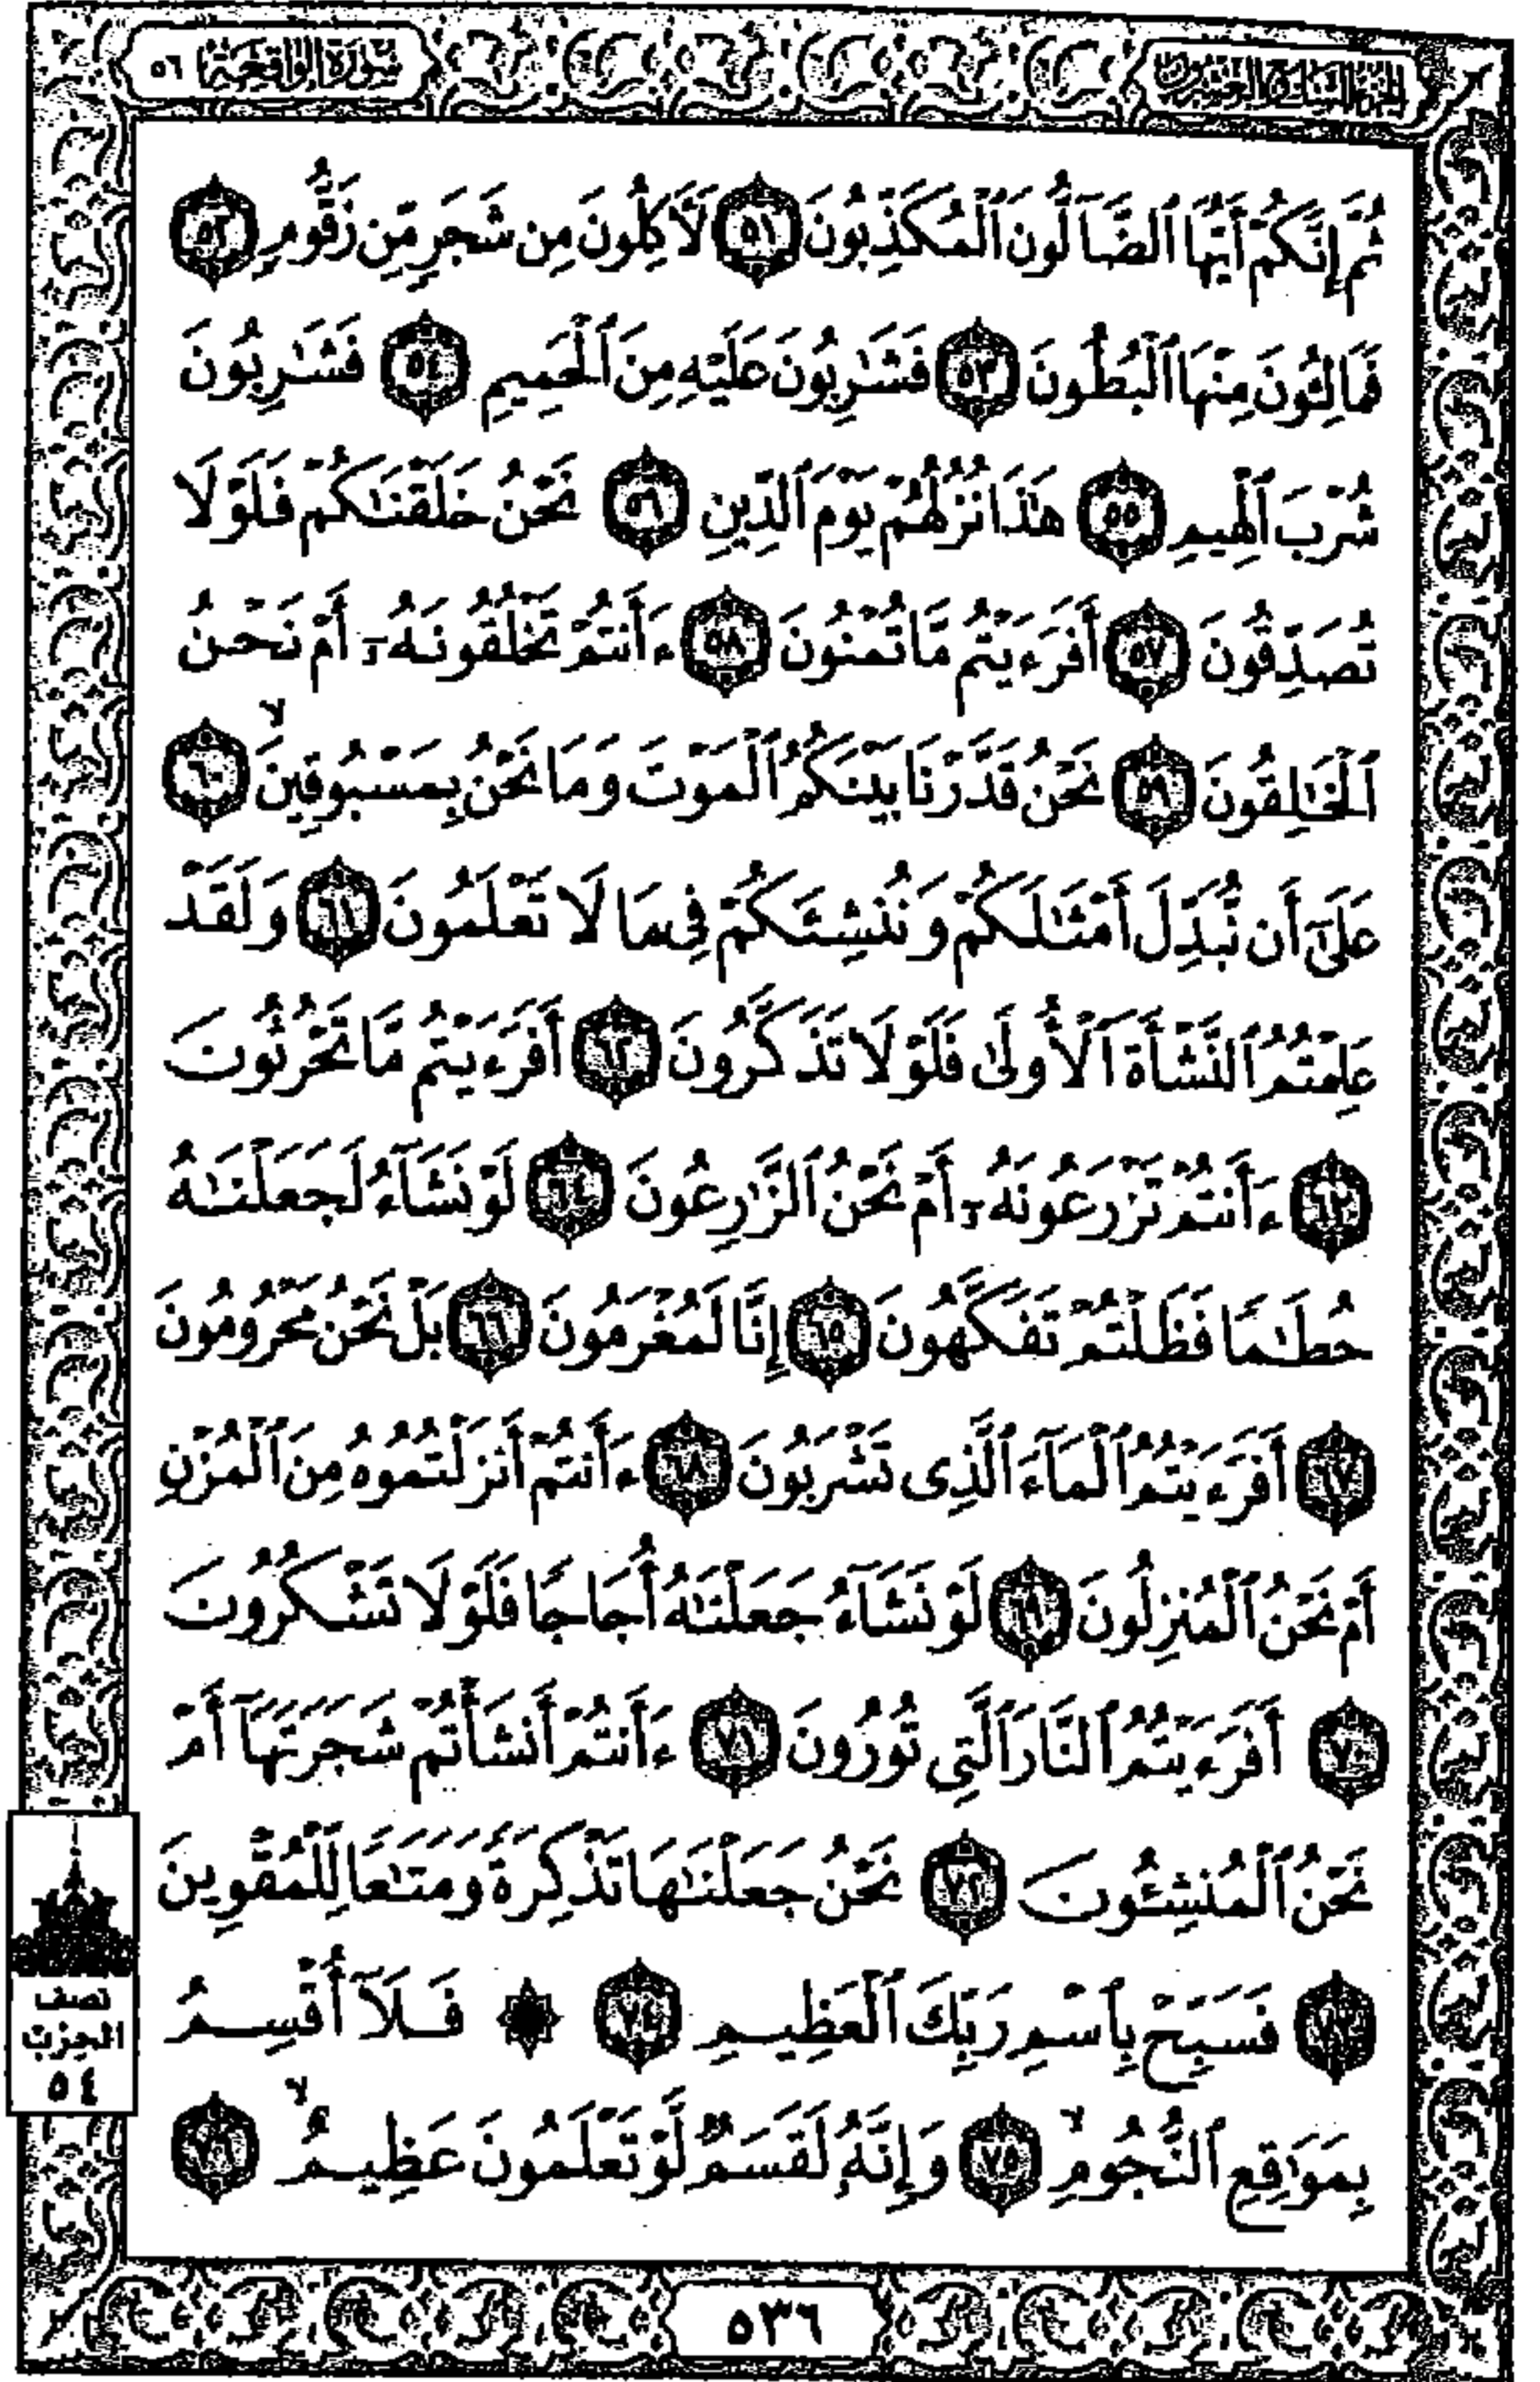 الجزء السابع والعشرون
سورة الواقعة ٥٦
ثُمَّ إِنَّكُمْ أَيُّهَا ٱلضَّآلُّونَ ٱلْمُكَذِّبُونَ ٥١ لَأَكِلُونَ مِن شَجَرٍ مِّن زَقُّومٍ ٥٢
فَمَالِـُٔونَ مِنْهَا ٱلْبُطُونَ ٥٣ فَشَـٰرِبُونَ عَلَيْهِ مِنَ ٱلْحَمِيمِ ٥٤ فَشَـٰرِبُونَ
شُرْبَ ٱلْهِيمِ ٥٥ هَـٰذَا نُزُلُهُمْ يَوْمَ ٱلدِّينِ ٥٦ نَحْنُ خَلَقْنَـٰكُمْ فَلَوْلَا
تُصَدِّقُونَ ٥٧ أَفَرَءَيْتُم مَّا تُمْنُونَ ٥٨ ءَأَنتُمْ تَخْلُقُونَهُۥٓ أَمْ نَحْنُ
ٱلْخَـٰلِقُونَ ٥٩ نَحْنُ قَدَّرْنَا بَيْنَكُمُ ٱلْمَوْتَ وَمَا نَحْنُ بِمَسْبُوقِينَ ۙ ٦٠
عَلَىٰٓ أَن نُّبَدِّلَ أَمْثَـٰلَكُمْ وَنُنشِئَكُمْ فِى مَا لَا تَعْلَمُونَ ٦١ وَلَقَدْ
عَلِمْتُمُ ٱلنَّشْأَةَ ٱلْأُولَىٰ فَلَوْلَا تَذَكَّرُونَ ٦٢ أَفَرَءَيْتُم مَّا تَحْرُثُونَ
٦٣ ءَأَنتُمْ تَزْرَعُونَهُۥٓ أَمْ نَحْنُ ٱلزَّٰرِعُونَ ٦٤ لَوْ نَشَآءُ لَجَعَلْنَـٰهُ
حُطَـٰمًا فَظَلْتُمْ تَفَكَّهُونَ ٦٥ إِنَّا لَمُغْرَمُونَ ٦٦ بَلْ نَحْنُ مَحْرُومُونَ
٦٧ أَفَرَءَيْتُمُ ٱلْمَآءَ ٱلَّذِى تَشْرَبُونَ ٦٨ ءَأَنتُمْ أَنزَلْتُمُوهُ مِنَ ٱلْمُزْنِ
أَمْ نَحْنُ ٱلْمُنزِلُونَ ٦٩ لَوْ نَشَآءُ جَعَلْنَـٰهُ أُجَاجًا فَلَوْلَا تَشْكُرُونَ
٧٠ أَفَرَءَيْتُمُ ٱلنَّارَ ٱلَّتِى تُورُونَ ٧١ ءَأَنتُمْ أَنشَأْتُمْ شَجَرَتَهَآ أَمْ
نَحْنُ ٱلْمُنشِـُٔونَ ٧٢ نَحْنُ جَعَلْنَـٰهَا تَذْكِرَةً وَمَتَـٰعًا لِّلْمُقْوِينَ
٧٣ فَسَبِّحْ بِٱسْمِ رَبِّكَ ٱلْعَظِيمِ ٧٤ ۞ فَلَآ أُقْسِمُ
بِمَوَٰقِعِ ٱلنُّجُومِ ۙ ٧٥ وَإِنَّهُۥ لَقَسَمٌ لَّوْ تَعْلَمُونَ عَظِيمٌ ۙ ٧٦
نصف
الحزب
٥٤
٥٣٦